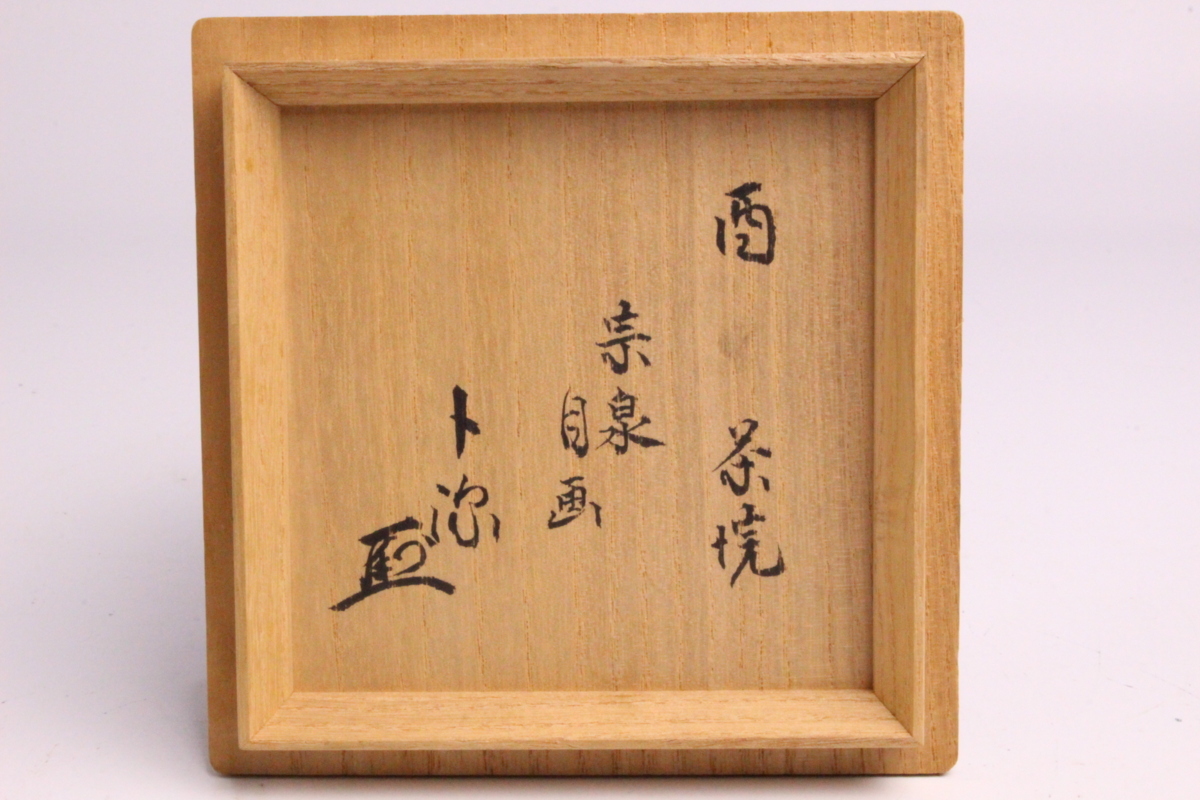 酉 茶垸
宗泉
自画
卜深